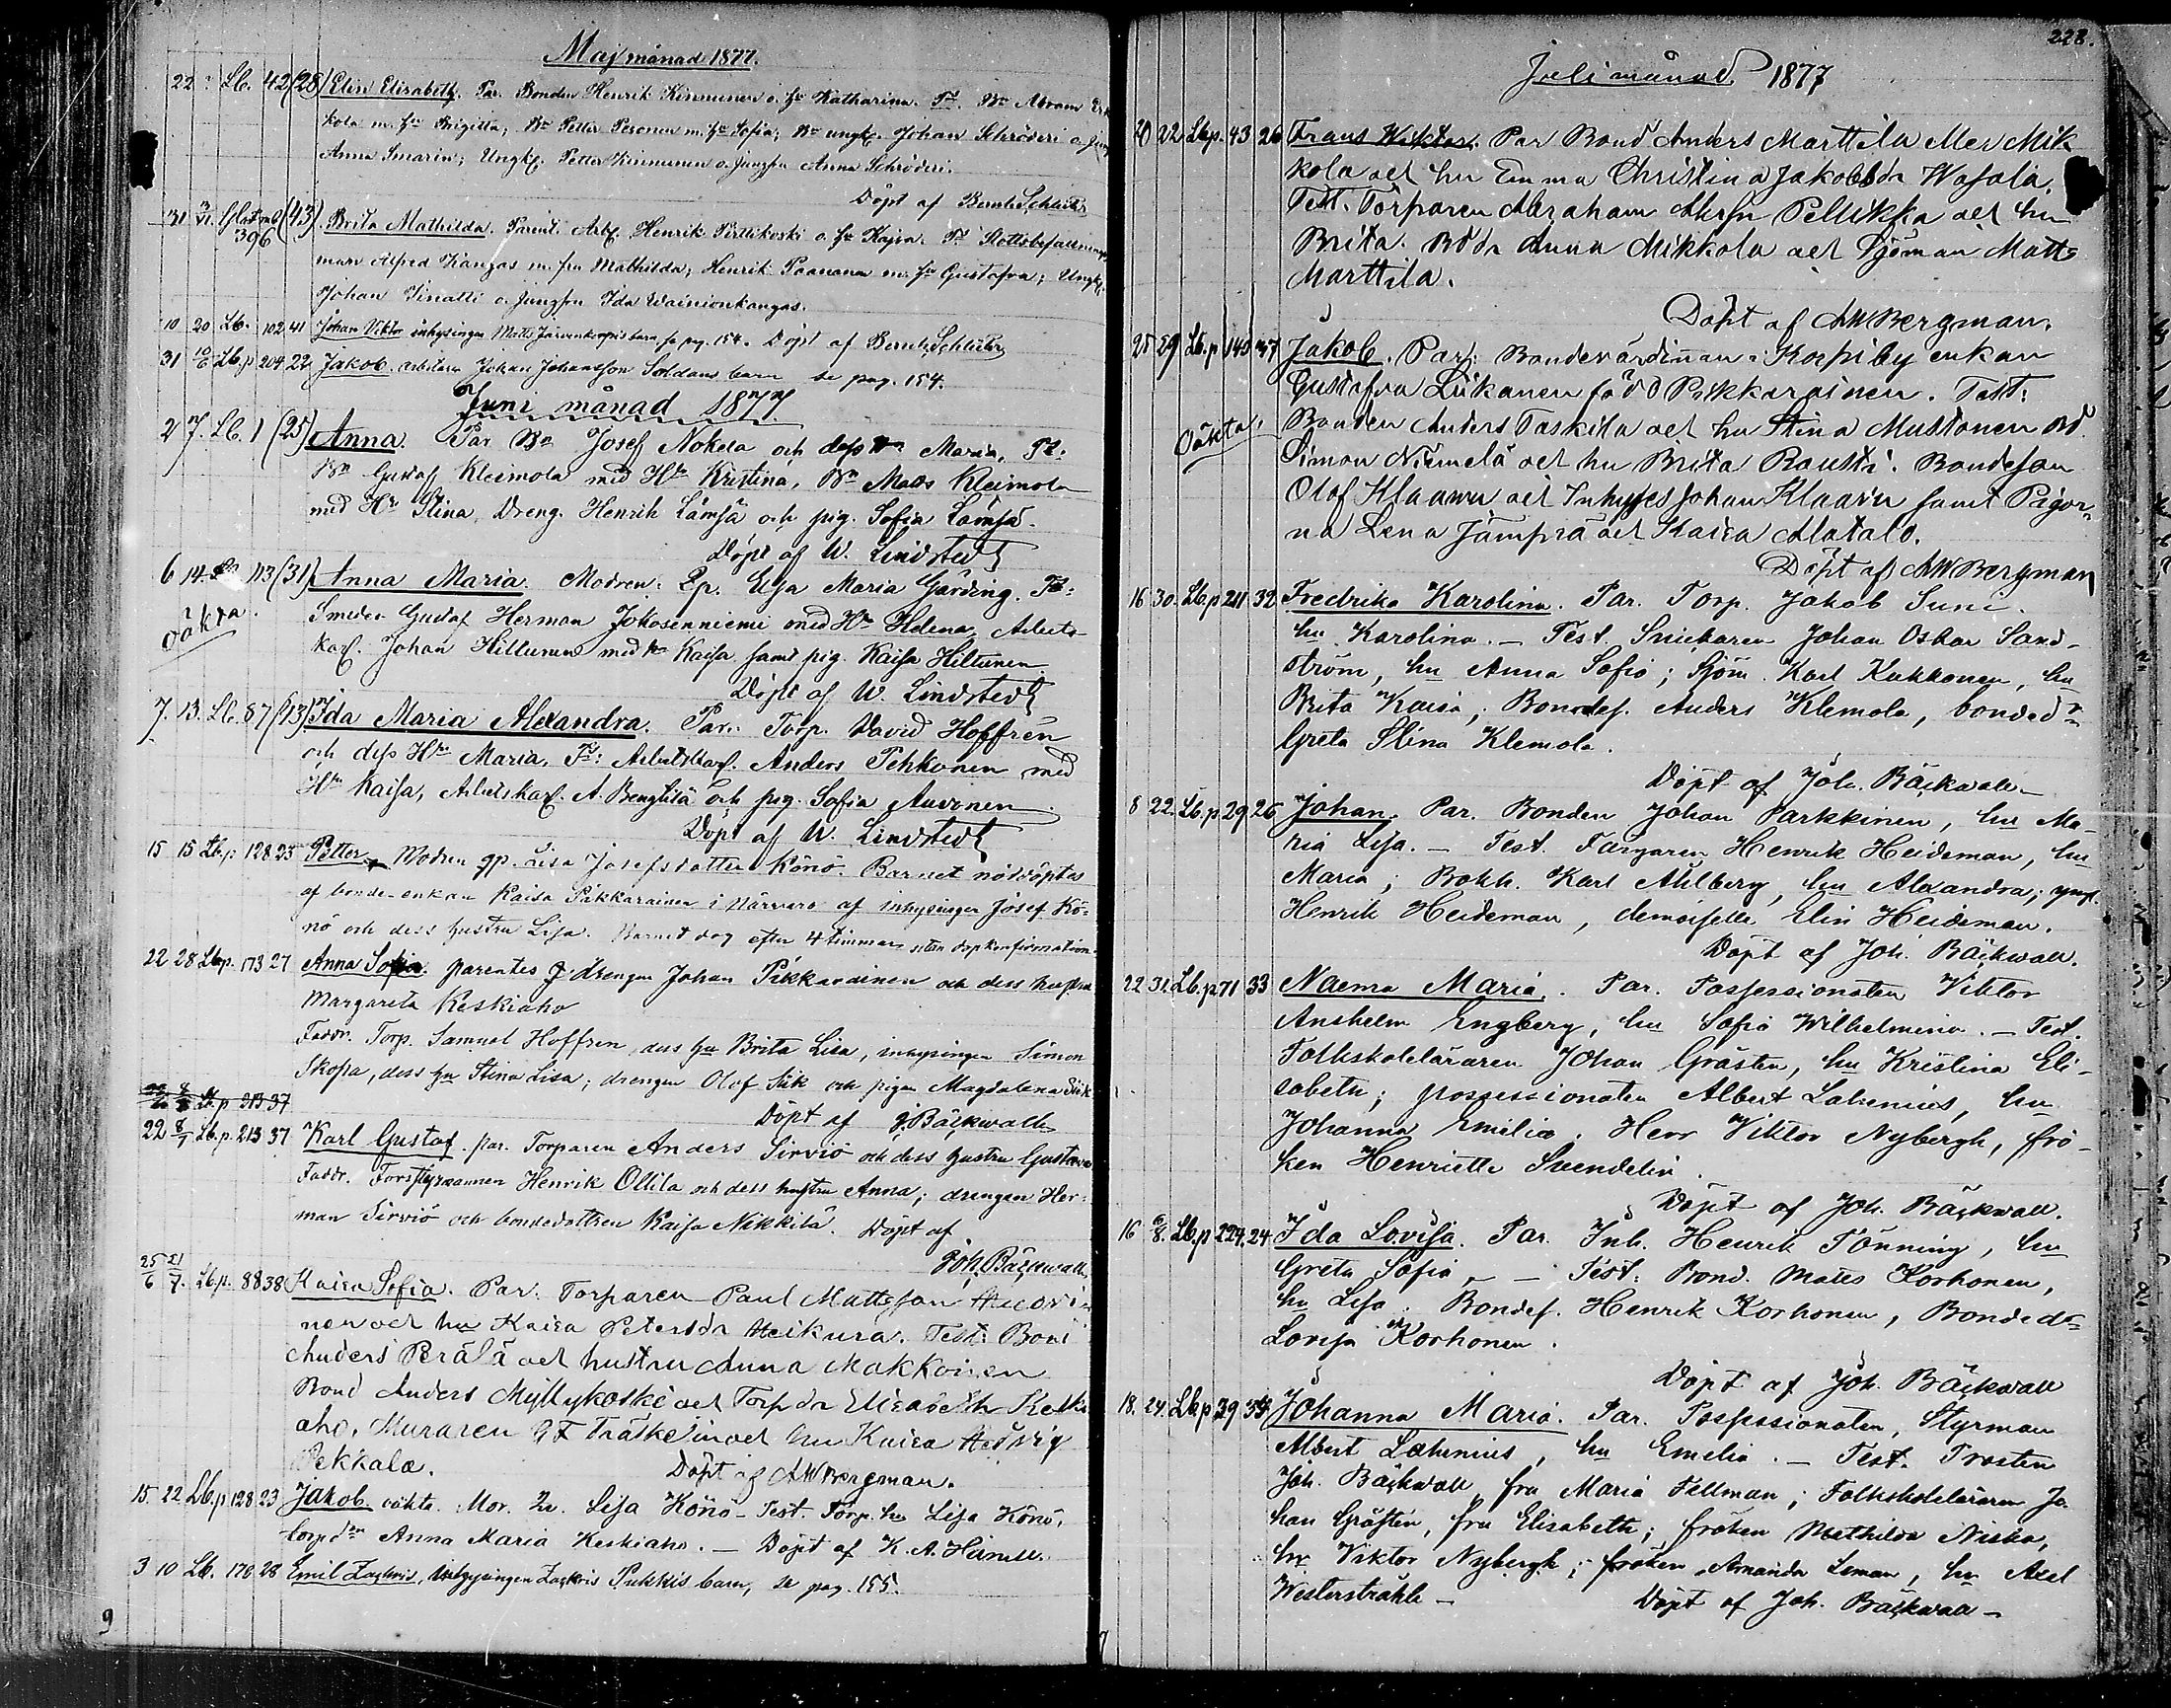 Maj månad 1877.
22 Lb. 42 (28) Elin Elisabeth. Par. Bonden Henrik Kinnunen o. hu Katharina. Tt. Bn Abram
kola m. hu Brigitta; Bn Petter Peronen m. hu Sofia; Bn ungk. Johan Schröderi o.
Anna Smarin; Ungk. Petter Kinnunen o. jungfru Anna Schröderi.
Döpt af Bernh. Schlüter
31 3/VI. 396 (43). Brita Mathilda. Parent. Arbk. Henrik Pirttikoski o. hu Kajsa. Tt Slottsbefallnings
man Alfred Kangas m. fru Mathilda; Henrik Paananen m. hu Gustafva; Ungk.
Johan o. jungfru Ida Wainionkangas.
10 20 Lb. 102 41 Johan Viktor inhysingen Matts barn se pag. 154. Döpt af Bernh. Schlüter
31 10/6 Lb.p 204 22 Jakob arbetaren Johan Johansson Soldans barn se pag. 154.
Juni månad 1877
2 7. Lb. 1 (25) Anna. Par Bn Josef Nokela och dess Hu Maria. Tt:
Bn Gustaf Kleimola med Hu Kristina, Bn Matts Kleimola
med Hu Stina, Dreng. Henrik Lämsä och pig. Sofia Lämsä.
Döpt af W. Lindstedt
6 14 Lb. 113 (31) Anna Maria. Modren: Qp. Elsa Maria Gärding. Tt:
oäkta. Smeden Gustaf Herman Jokosenniemi med Hu Helena, Arbets-
karl. Johan Hiltunen med hu Kaisa samt pig. Kaisa Hiltunen
Döpt af W. Lindstedt
7. 13. Lb. 87 (13) Ida Maria Alexandra. Par: Torp. David Hoffrén
och dess Hu Maria, Tt: Arbetskarl. Anders Pehkonen med
Hu Kaisa, Arbetskarl. A. Bengtilä och pig. Sofia Auvonen.
Döpt af W. Lindstedt
15 15 Lb.p 128 23 Petter. Modren qp. Lisa Josefsdotter Könö. Barnet nöddöptes
af bonde-enkan Kaisa Pikkarainen i närvaro af inhysingen Josef Kö-
nö och dess hustru Lisa. Barnet dog efter 4 timmar utan dopkonfirmation.
22 28 Lb.p. 173 27 Anna Sofia. parentes drengen Johan Pikkarainen och dess hustru
Margareta Keskiaho
Faddr. Torp. Samuel Hoffren, dess hu Brita Lisa, inhysingen Simon
Skopa, dess hu Stina Lisa; drengen Olof Siik och pigan Magdalena Siik
Lb.p 213 37
Döpt af J. Bäckwall
22 8/7 Lb.p. 213 37 Karl Gustaf. par. Torparen Anders Sirviö och dess hustru Gustava
Faddr. Forstyrmannen Henrik Ollila och dess hustru Anna; drengen Her-
man Sirviö och bondedottren Kaisa Nikkilä. Döpt af
Joh. Bäckwall
25/6 21/7. Lb.p. 88 38 Kaisa Sofia. Par: Torparen Paul Mattsson
nen och hu Kaisa Petersdr Heikura. Test: Bond
Anders Perälä och hustru Anna Makkoinen
Bond Anders Myllykoski och Torp dr Elisabeth Keski
aho. Muraren G F Träskelin och hu Kaisa Hedvig
Pekkala. Döpt af AW Bergman.
15. 22 Lb.p 128 23 Jakob oäkta. Mor. Lisa Könö. Test. Torp. hu Lisa Könö,
torp drn Anna Maria Keskiaho. — Döpt af K. A.
3 10 Lb. 170 28 Emil Zachris, inhysingen Zachris Pukkis barn, se pag. 155.
9
228.
Juli månad 1877
20 22 Lb.p. 43 26 Frans Wiktor. Par Bond Anders Marttila Mik
kola och hu Emma Christina Jakobsdr Wasala.
Test. Torparen Abraham Pellikka och hu
Brita. Bddr Anna Mikkola och Sjöman Matts
Marttila.
Döpt af AW Bergman.
25 29 Lb.p 145 37 Jakob. Par: Bondevärdinnan i Korpiby enkan
Gustafva Liikanen född Pikkarainen. Test:
Oäkta. Bonden Anders Taskila och hu Stina Mustonen Bd
Simon Niemelä och hu Brita Rautti. Bondeson
Olof Klaavu och Inhyses Johan Klaavu samt Pigor
na Lena Jämpsä och Kaisa Alatalo.
Döpt af AW Bergman
16 30. Lb.p 211 32 Fredrika Karolina. Par. Torp. Jakob Suni.
hu Karolina. — Test. Snickaren Johan Oskar Sand-
ström, hu Anna Sofia; Sjöm. Karl Kukkonen, hu
Brita Kaisa; Bondes. Anders Klemola, bondedr
Greta Stina Klemola.
Döpt af Joh. Bäckwall —
8 22. Lb.p 29 26 Johan. Par. Bonden Johan Parkkinen, hu Ma-
ria Lisa. — Test. Färgaren Henrik Heideman, hu
Maria; Bokh. Karl Ahlberg, hu Alexandra; yngl.
Henrik Heideman, demoiselle Elin Heideman.
Döpt af Joh. Bäckwall.
22 31. Lb.p 71 33 Naema Maria. Par. Possessionaten Viktor
Anshelm Engberg, hu Sofia Wilhelmina. — Test.
Folkskoleläraren Johan Grästen, hu Kristina Eli-
sabeth; possessionaten Albert Lahenius, hu
Johanna Emilia. Herr Viktor Nybergh, frö-
ken Henriette Svendelin.
Döpt af Joh. Bäckwall.
16 6/8. Lb.p 224. 24 Ida Lovisa. Par. Inh. Henrik Tönning, hu
Greta Sofia, — Test: Bond. Matts Korhonen,
hu Lisa. Bondes. Henrik Korhonen, Bondedr
Lovisa Korhonen.
Döpt af Joh. Bäckwall
18. 24. Lb.p 39 Johanna Maria. Par. Possessionaten, Styrman
Albert Lahenius, hu Emelia. — Test. Prosten
Joh. Bäckwall, fru Maria Fellman; Folkskoleläraren Jo-
han Grästen, fru Elisabeth; fröken Mathilda Niska,
hr Viktor Nybergh; fröken Amanda Leman, hr Axel
Westerstråhle — Döpt af Joh. Bäckwall —